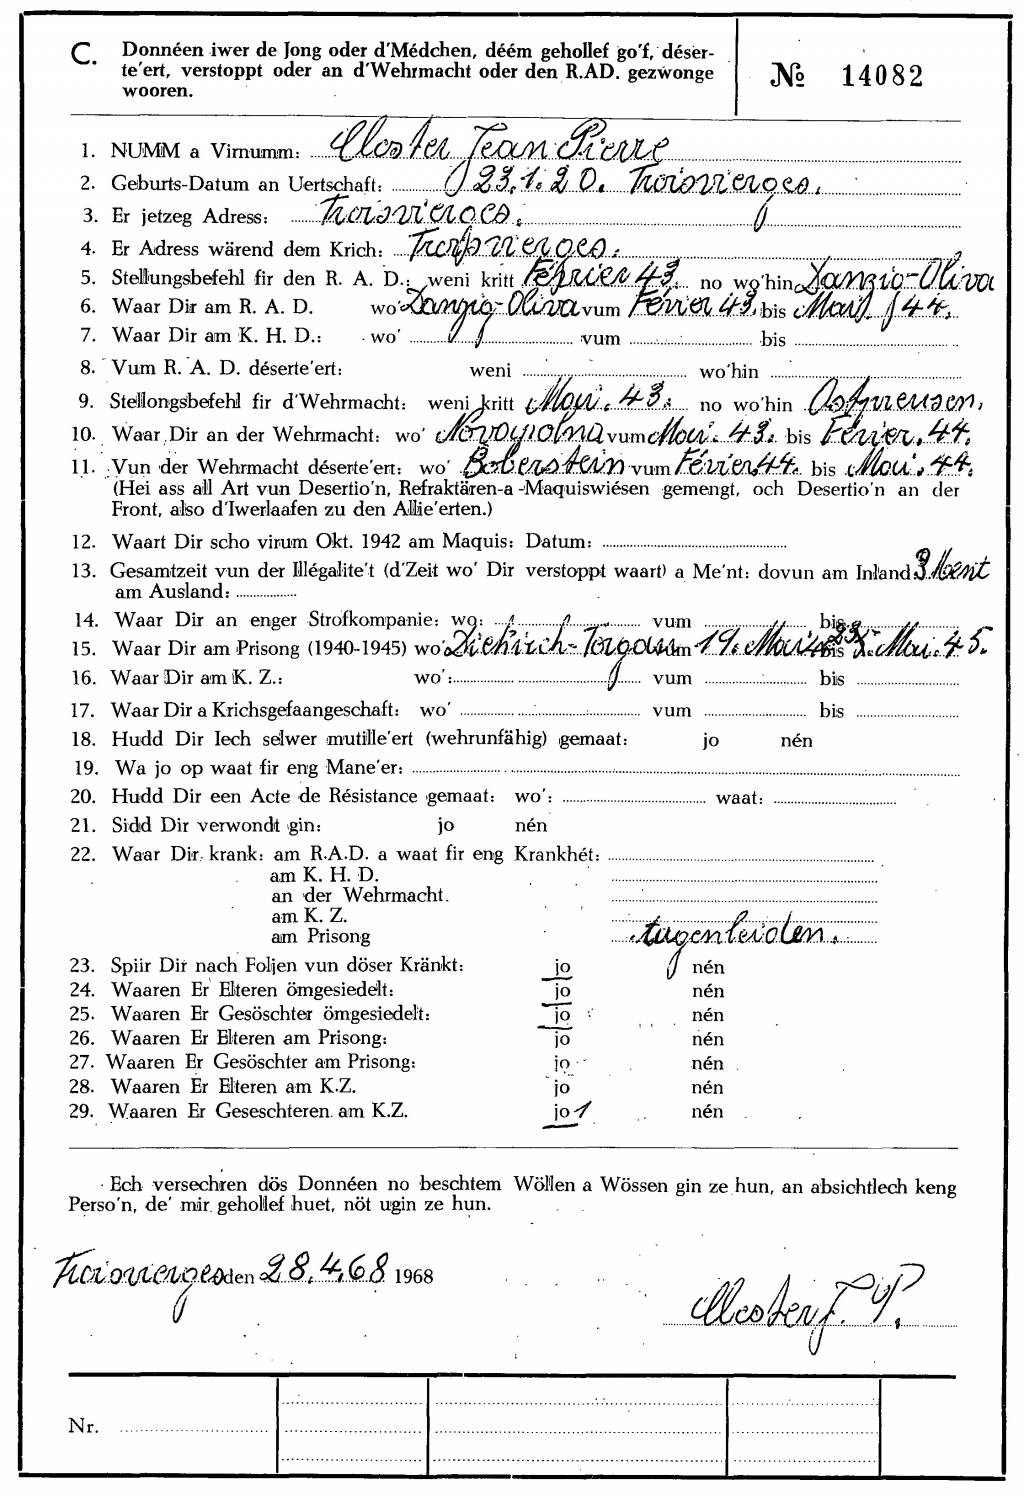 C. Donnéen iwer de Jong oder d'Médchen, déém gehollef go'f, déser-
te'ert, verstoppt oder an d'Wehrmacht oder den R.AD. gezwonge
wooren.
№ 14082
1. NUMM a Virnumm: Closter Jean Pierre
2. Geburts-Datum an Uertschaft: 23.1.20. Troisvierges.
3. Er jetzeg Adress: Troisvierges.
4. Er Adress wärend dem Krich: Troisvierges.
5. Stellungsbefehl fir den R. A. D.: weni kritt Février 43. no wo'hin Danzig-Oliva
6. Waar Dir am R. A. D. wo' Danzig-Oliva vum Février 43. bis Mai 44.
7. Waar Dir am K. H. D.: wo' vum bis
8. Vum R. A. D. déserte'ert: weni wo'hin
9. Stellongsbefehl fir d'Wehrmacht: weni kritt Mai. 43. no wo'hin Ostpreusen.
10. Waar Dir an der Wehrmacht: wo' vum Mai. 43. bis Février. 44.
11. Vun der Wehrmacht déserte'ert: wo' Boberstein vum Février 44. bis Mai. 44.
(Hei ass all Art vun Desertio'n, Refraktären-a-Maquiswiésen gemengt, och Desertio'n an der
Front, also d'Iwerlaafen zu den Allie'erten.)
12. Waart Dir scho virum Okt. 1942 am Maquis: Datum:
13. Gesamtzeit vun der Illégalite't (d'Zeit wo' Dir verstoppt waart) a Me'nt: dovun am Inland: 3 Ment
am Ausland:
14. Waar Dir an enger Strofkompanie: wo: vum bis
15. Waar Dir am Prison (1940-1945) wo' Diekirch-Torgau vum 19. Mai bis Mai. 45.
16. Waar Dir am K. Z.: wo': vum bis
17. Waar Dir a Krichsgefaangeschaft: wo' vum bis
18. Hudd Dir Iech selwer mutille'ert (wehrunfähig) gemaat: jo nén
19. Wa jo op waat fir eng Mane'er:
20. Hudd Dir een Acte de Résistance gemaat: wo': waat:
21. Sidd Dir verwondt gin: jo nén
22. Waar Dir krank: am R.A.D. a waat fir eng Krankhét:
am K. H. D.
an der Wehrmacht.
am K. Z.
am Prisong Augenleiden.
23. Spiir Dir nach Foljen vun döser Kränkt: jo nén
24. Waaren Er Elteren ömgesiedelt: jo nén
25. Waaren Er Gesöschter ömgesiedelt: jo nén
26. Waaren Er Elteren am Prisong: jo nén
27. Waaren Er Gesöschter am Prisong: jo nén
28. Waaren Er Elteren am K.Z. jo nén
29. Waaren Er Geseschteren am K.Z. jo 1 nén
Ech versechren dös Donnéen no beschtem Wöllen a Wössen gin ze hun, an absichtlech keng
Perso'n, de' mir gehollef huet, nöt ugin ze hun.
Troisvierges den 28.4.68 1968
Closter J. P.
Nr.